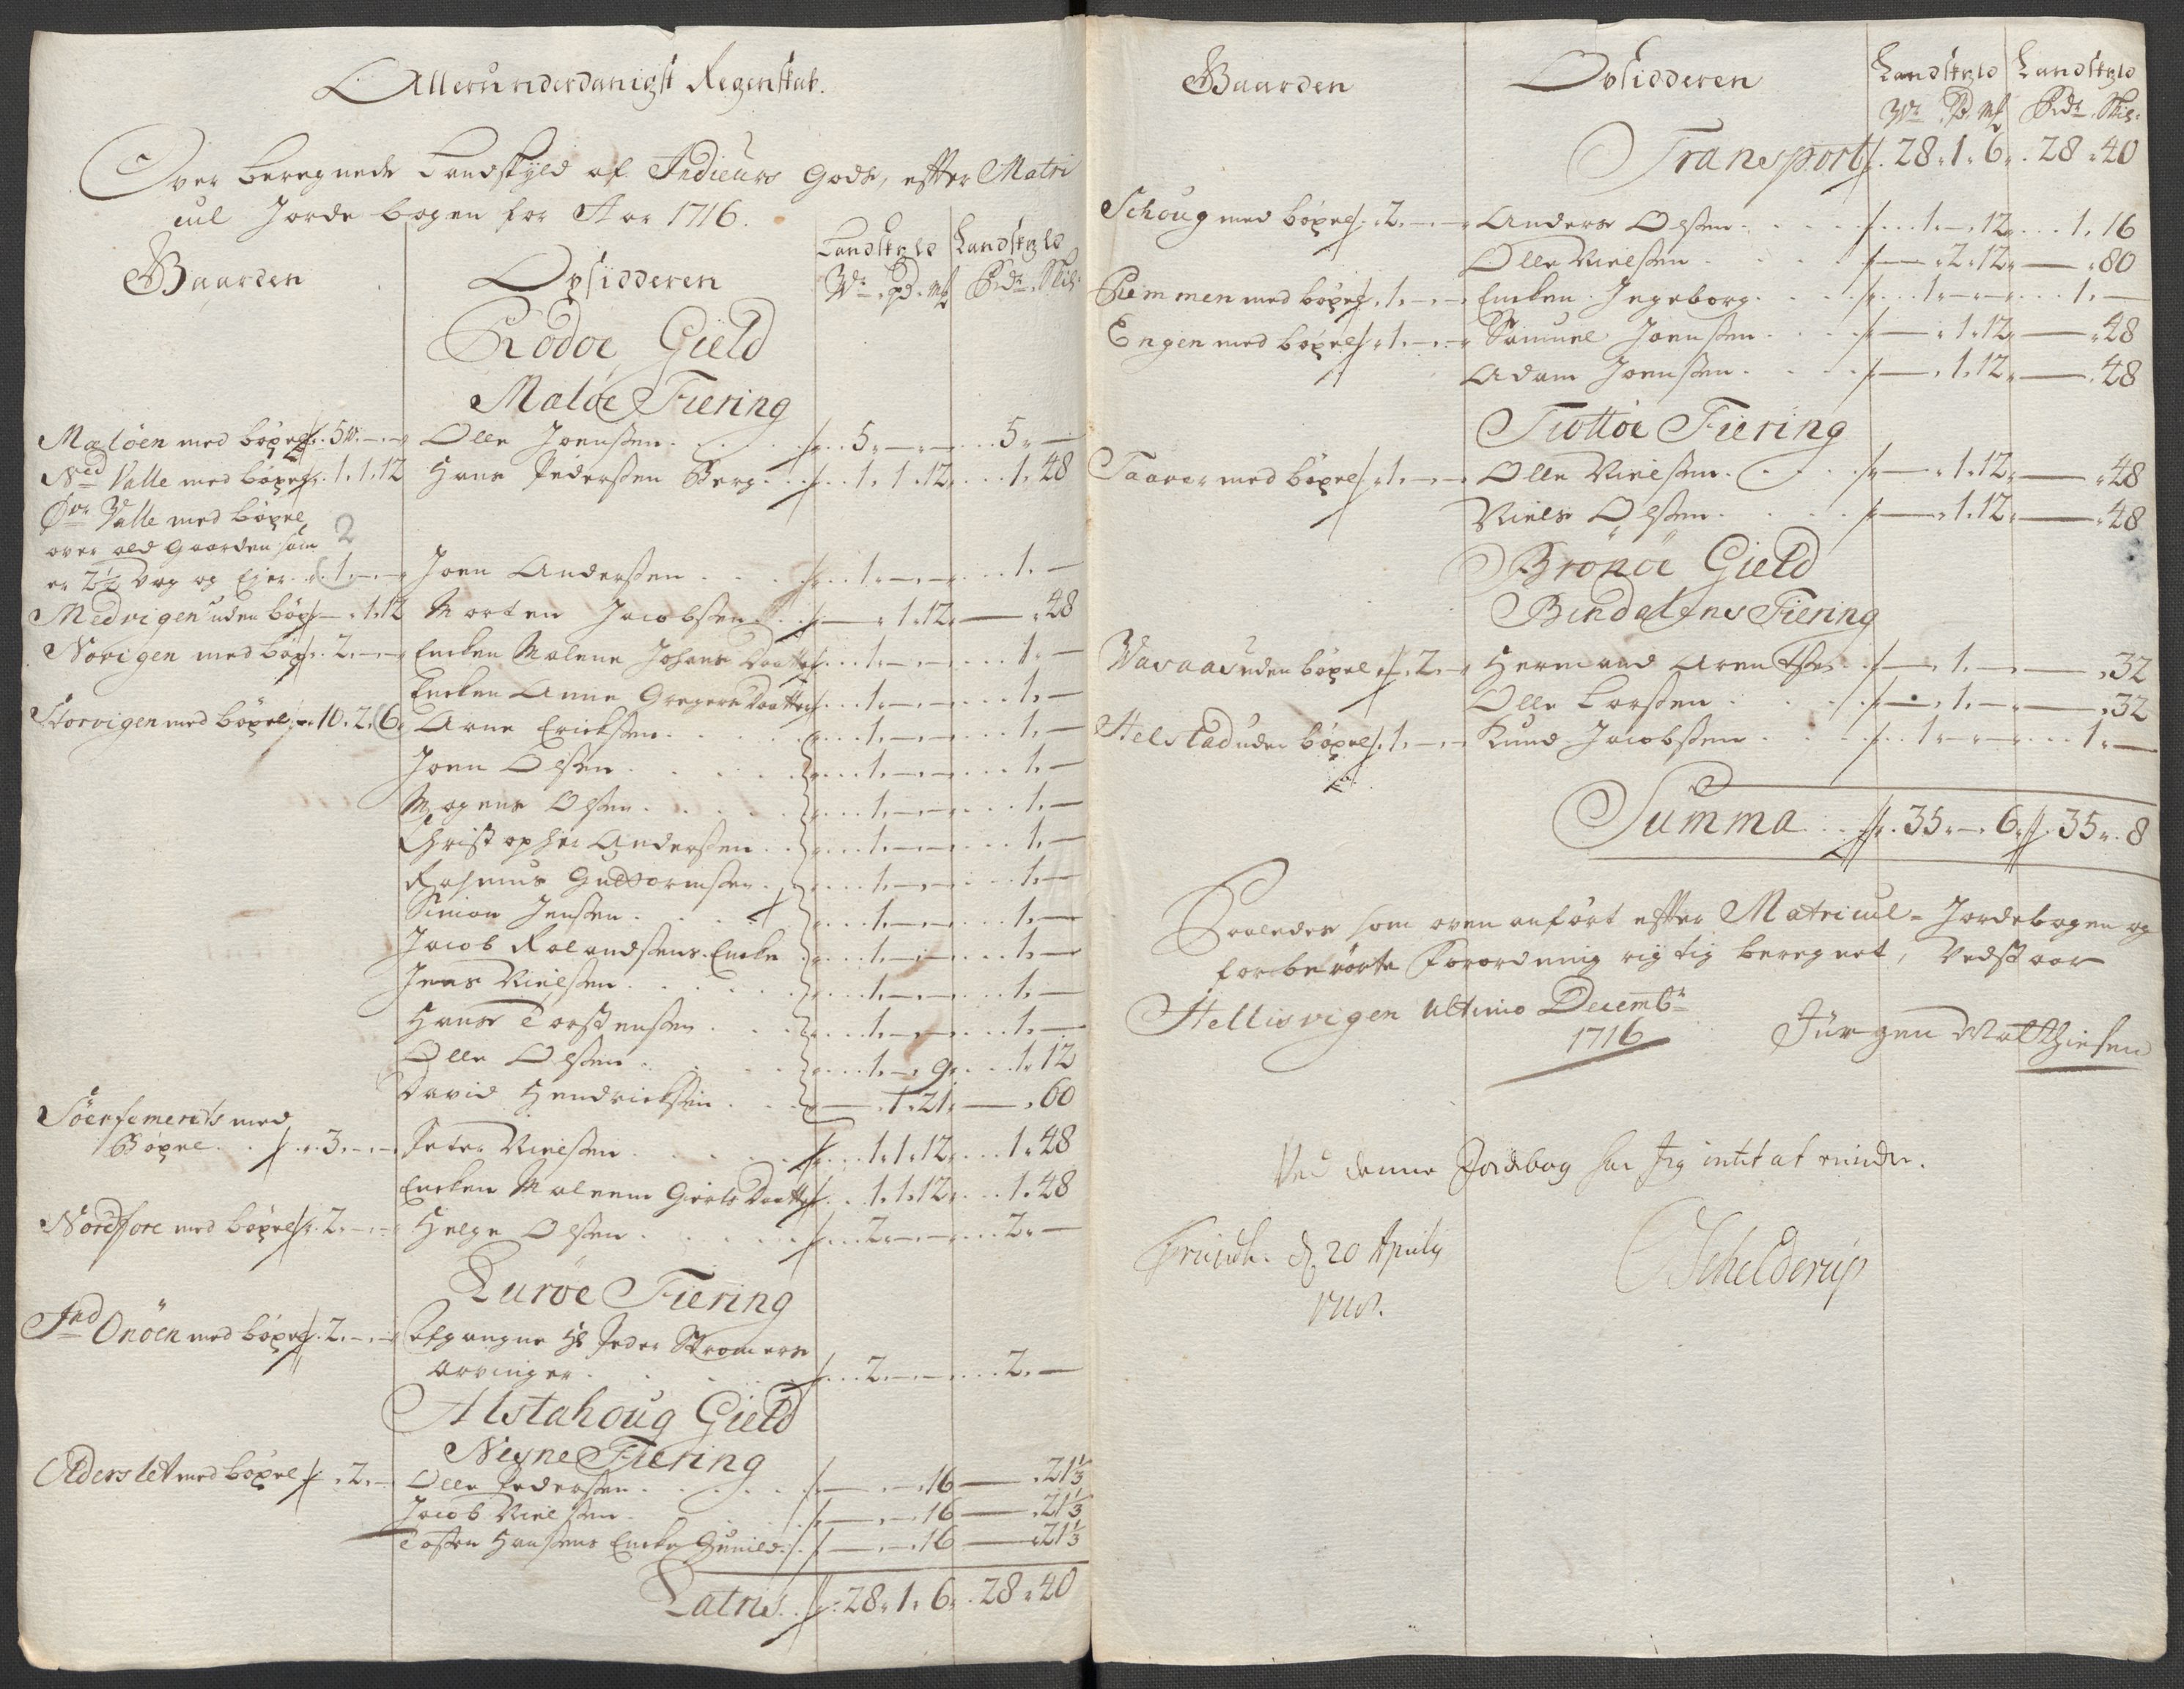 Allerunderdanigst Regenskab.
Over beregnede Landskyld af Indicurs Gods, efter Matri
cul Jorde bogen for Aar 1716.
Gaarden Opsidderen Landskyld Landskyld
Wr. Pd. mk Rdr. Skil:
Rodøe Gield
Maløe Fiering
Maløen med bøxel 5 W. - - Olle Joensen 5. - - 5. -
Ned Valle med bøxel 1. 1. 12 Hans Pedersen Berg 1. 1. 12 1. 48
Øvr Valle med bøxel 2
over ald Gaarden som
er 2½ Vog og Ejer 1. - - Joen Andersen 1. - - 1. -
Medvigen uden bøxel - 1. 12 Morten Jacobsen - 1. 12 - 48
Novigen med bøxel 2. - - Encken Malene Johans Daatter 1. - - 1. -
Encken Anne Gregers Daatter 1. - - 1. -
Storvigen med bøxel 10. 2. 6 Arne Ericksen 1. - - 1. -
Joen Olsen 1. - - 1. -
Mogens Olsen 1. - - 1. -
Christopher Andersen 1. - - 1. -
Rasmus Guttormsen 1. - - 1. -
Simon Jensen 1. - - 1. -
Jacob Rolandsens Encke 1. - - 1. -
Jens Nielsen 1. - - 1. -
Hans Torstensen 1. - - 1. -
Olle Olsen 1. - 9 1. 12
David Hendricksen - 1. 21 - 60
Søerfemerets med
Bøxel 3. - - Peter Nielsen 1. 1. 12 1. 48
Encken Maleene Giertsdaatter 1. 1. 12 1. 48
Nordfore med bøxel 2. - - Helge Olsen 2. - - 2. -
Lurøe Fiering
Ind Onøen med bøxel 2. - - Afgangne Hr Peder Strømers
Arvinger 2. - - 2. -
Alstahoug Gield
Neyne Fiering
Alderslet med bøxel 2. - Olle Pedersen - - 16 - 21⅓
Jacob Nielsen - - 16 - 21⅓
Tosten Hansens Encke Gunild - - 16 - 21⅓
Latris 28. 1. 6. 28. 40
Gaarden Opsidderen Landskyld Landskyld
Wr. P. mk Rdr. Skil:
Transport 28. 1. 6. 28. 40
Schoug med bøxel 2. - - Anders Olsen 1. - 12 1. 16
Olle Nielsen - 2. 12 - 80
Remmen med bøxel 1. - - Encken Ingeborg 1. - - 1. -
Engen med bøxel 1. - - Samuel Joensen - 1. 12 - 48
Adam Joensen - 1. 12 - 48
Tiøttøe Fiering
Taaver med bøxel 1. - - Olle Nielsen - 1. 12 - 48
Niels Olsen - 1. 12 - 48
Brønøe Gield
Bindalens Fiering
Vasaas uden bøxel - 2. - Hermand Arentsen - 1. - - 32
Olle Larsen - 1. - - 32
Helstad uden bøxel 1. - - Knud Jacobsen 1. - - 1. -
Summa 35. - 6. 35. 8
Saaledes som oven anført efter Matricul-Jordebogen og
forberørte Forordning rigtig beregnet, Vedstaar
Hellisvigen ultimo Decembr
1716 Jürgen Matthiesen
Ved denne Jordebog har Jeg intet at erindre.
d. 20 Aprily Schelderup